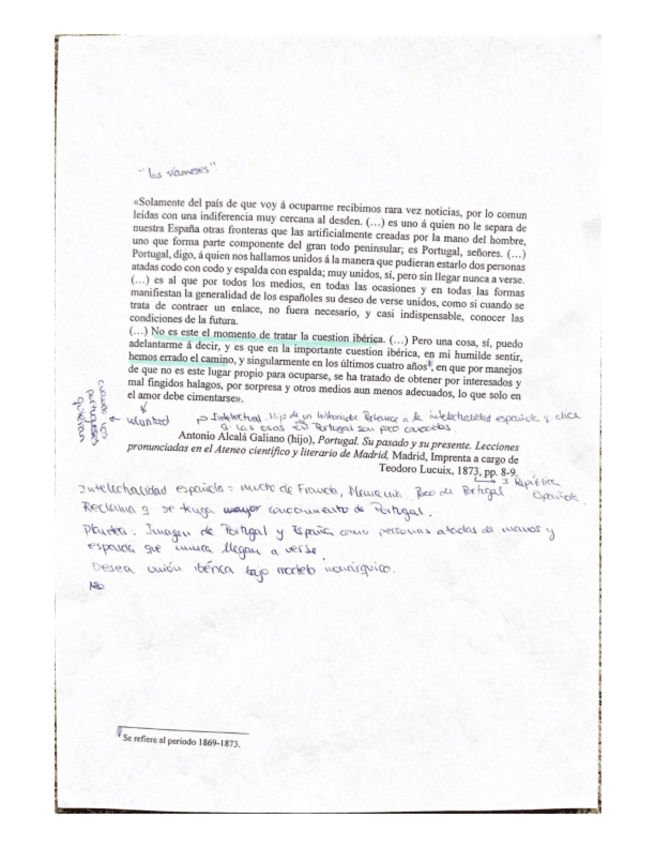 "los siameses"
«Solamente del país de que voy á ocuparme recibimos rara vez noticias, por lo comun
leidas con una indiferencia muy cercana al desden. (…) es uno á quien no le separa de
nuestra España otras fronteras que las artificialmente creadas por la mano del hombre,
uno que forma parte componente del gran todo peninsular; es Portugal, señores. (…)
Portugal, digo, á quien nos hallamos unidos á la manera que pudieran estarlo dos personas
atadas codo con codo y espalda con espalda; muy unidos, sí, pero sin llegar nunca a verse.
(…) es al que por todos los medios, en todas las ocasiones y en todas las formas
manifiestan la generalidad de los españoles su deseo de verse unidos, como si cuando se
trata de contraer un enlace, no fuera necesario, y casi indispensable, conocer las
condiciones de la futura.
(…) No es este el momento de tratar la cuestion ibérica. (…) Pero una cosa, sí, puedo
adelantarme á decir, y es que en la importante cuestion ibérica, en mi humilde sentir,
hemos errado el camino, y singularmente en los últimos cuatro años, en que por manejos
de que no es este lugar propio para ocuparse, se ha tratado de obtener por interesados y
mal fingidos halagos, por sorpresa y otros medios aun menos adecuados, lo que solo en
el amor debe cimentarse».
cuando los
portugueses
quieran
← voluntad
→ Intelectual. Hijo de un historiador. Pertenece a la intelectualidad española y dice
q las cosas de Portugal son poco conocidas.
Antonio Alcalá Galiano (hijo), Portugal. Su pasado y su presente. Lecciones
pronunciadas en el Ateneo científico y literario de Madrid, Madrid, Imprenta a cargo de
Teodoro Lucuix, 1873, pp. 8-9.
→ República
Española
Intelectualidad española = mucho de Francia, Alemania. Poco de Portugal
Reclama q se tenga mayor conocimiento de Portugal.
Plantea: Imagen de Portugal y España como personas atadas de manos y
espalda que nunca llegan a verse.
Desea unión ibérica bajo modelo monárquico.
No
Se refiere al período 1869-1873.